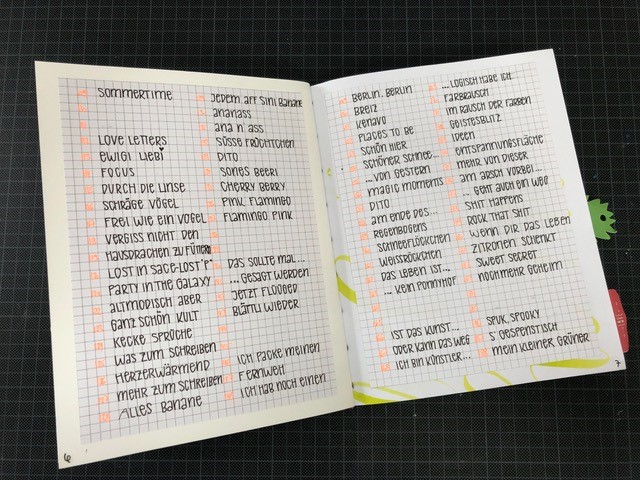 SOMMERTIME
LOVE LETTERS
EWIGI LIEBI
FOCUS
DURCH DIE LINSE
SCHRÄGE VÖGEL
FREI WIE EIN VOGEL
VERGISS NICHT DEN
HAUSDRACHEN ZU FÜTTERN
LOST IN SPACE-LOST "P"
PARTY IN THE GALAXY
ALTMODISCH ABER
GANZ SCHÖN KULT
KECKE SPRÜCHE
WAS ZUM SCHREIBEN
HERZERWÄRMEND
MEHR ZUM SCHREIBEN
ALLES BANANE
JEDEM AFF SINI BANANE
ANANASS
ANA N' ASS
SÜSSE FRÜCHTCHEN
DITO
SONES BEERI
CHERRY BERRY
PINK FLAMINGO
FLAMINGO PINK
DAS SOLLTE MAL...
... GESAGT WERDEN
JETZT FLÜÜGED
BLÄTTLI WIEDER
ICH PACKE MEINEN
FERNWEH
ICH HAB NOCH EINEN
6
BERLIN, BERLIN
BREIZ
KENAVO
PLACES TO BE
SCHÖN HIER
SCHÖNER SCHNEE...
... VON GESTERN
MAGIC MOMENTS
DITO
AM ENDE DES...
REGENBOGENS
SCHNEEFLÖCKCHEN
WEISSRÖCKCHEN
DAS LEBEN IST...
... KEIN PONNYHOF
IST DAS KUNST...
ODER KANN DAS WEG
ICH BIN KÜNSTLER...
... LOGISCH HABE ICH
FARBRAUSCH
IM RAUSCH DER FARBEN
GEISTESBLITZ
IDEEN
ENTSPANNUNGSFLÄCHE
MEHR VON DIESER
AM ARSCH VORBEI...
... GEHT AUCH EIN WEG
SHIT HAPPENS
ROCK THAT SHIT
WENN DIR DAS LEBEN
ZITRONEN SCHENKT
SWEET SECRET
NOCH MEHR GEHEIM
SPUK, SPOOKY
S' GESPENSTISCH
MEIN KLEINER GRÜNER
7